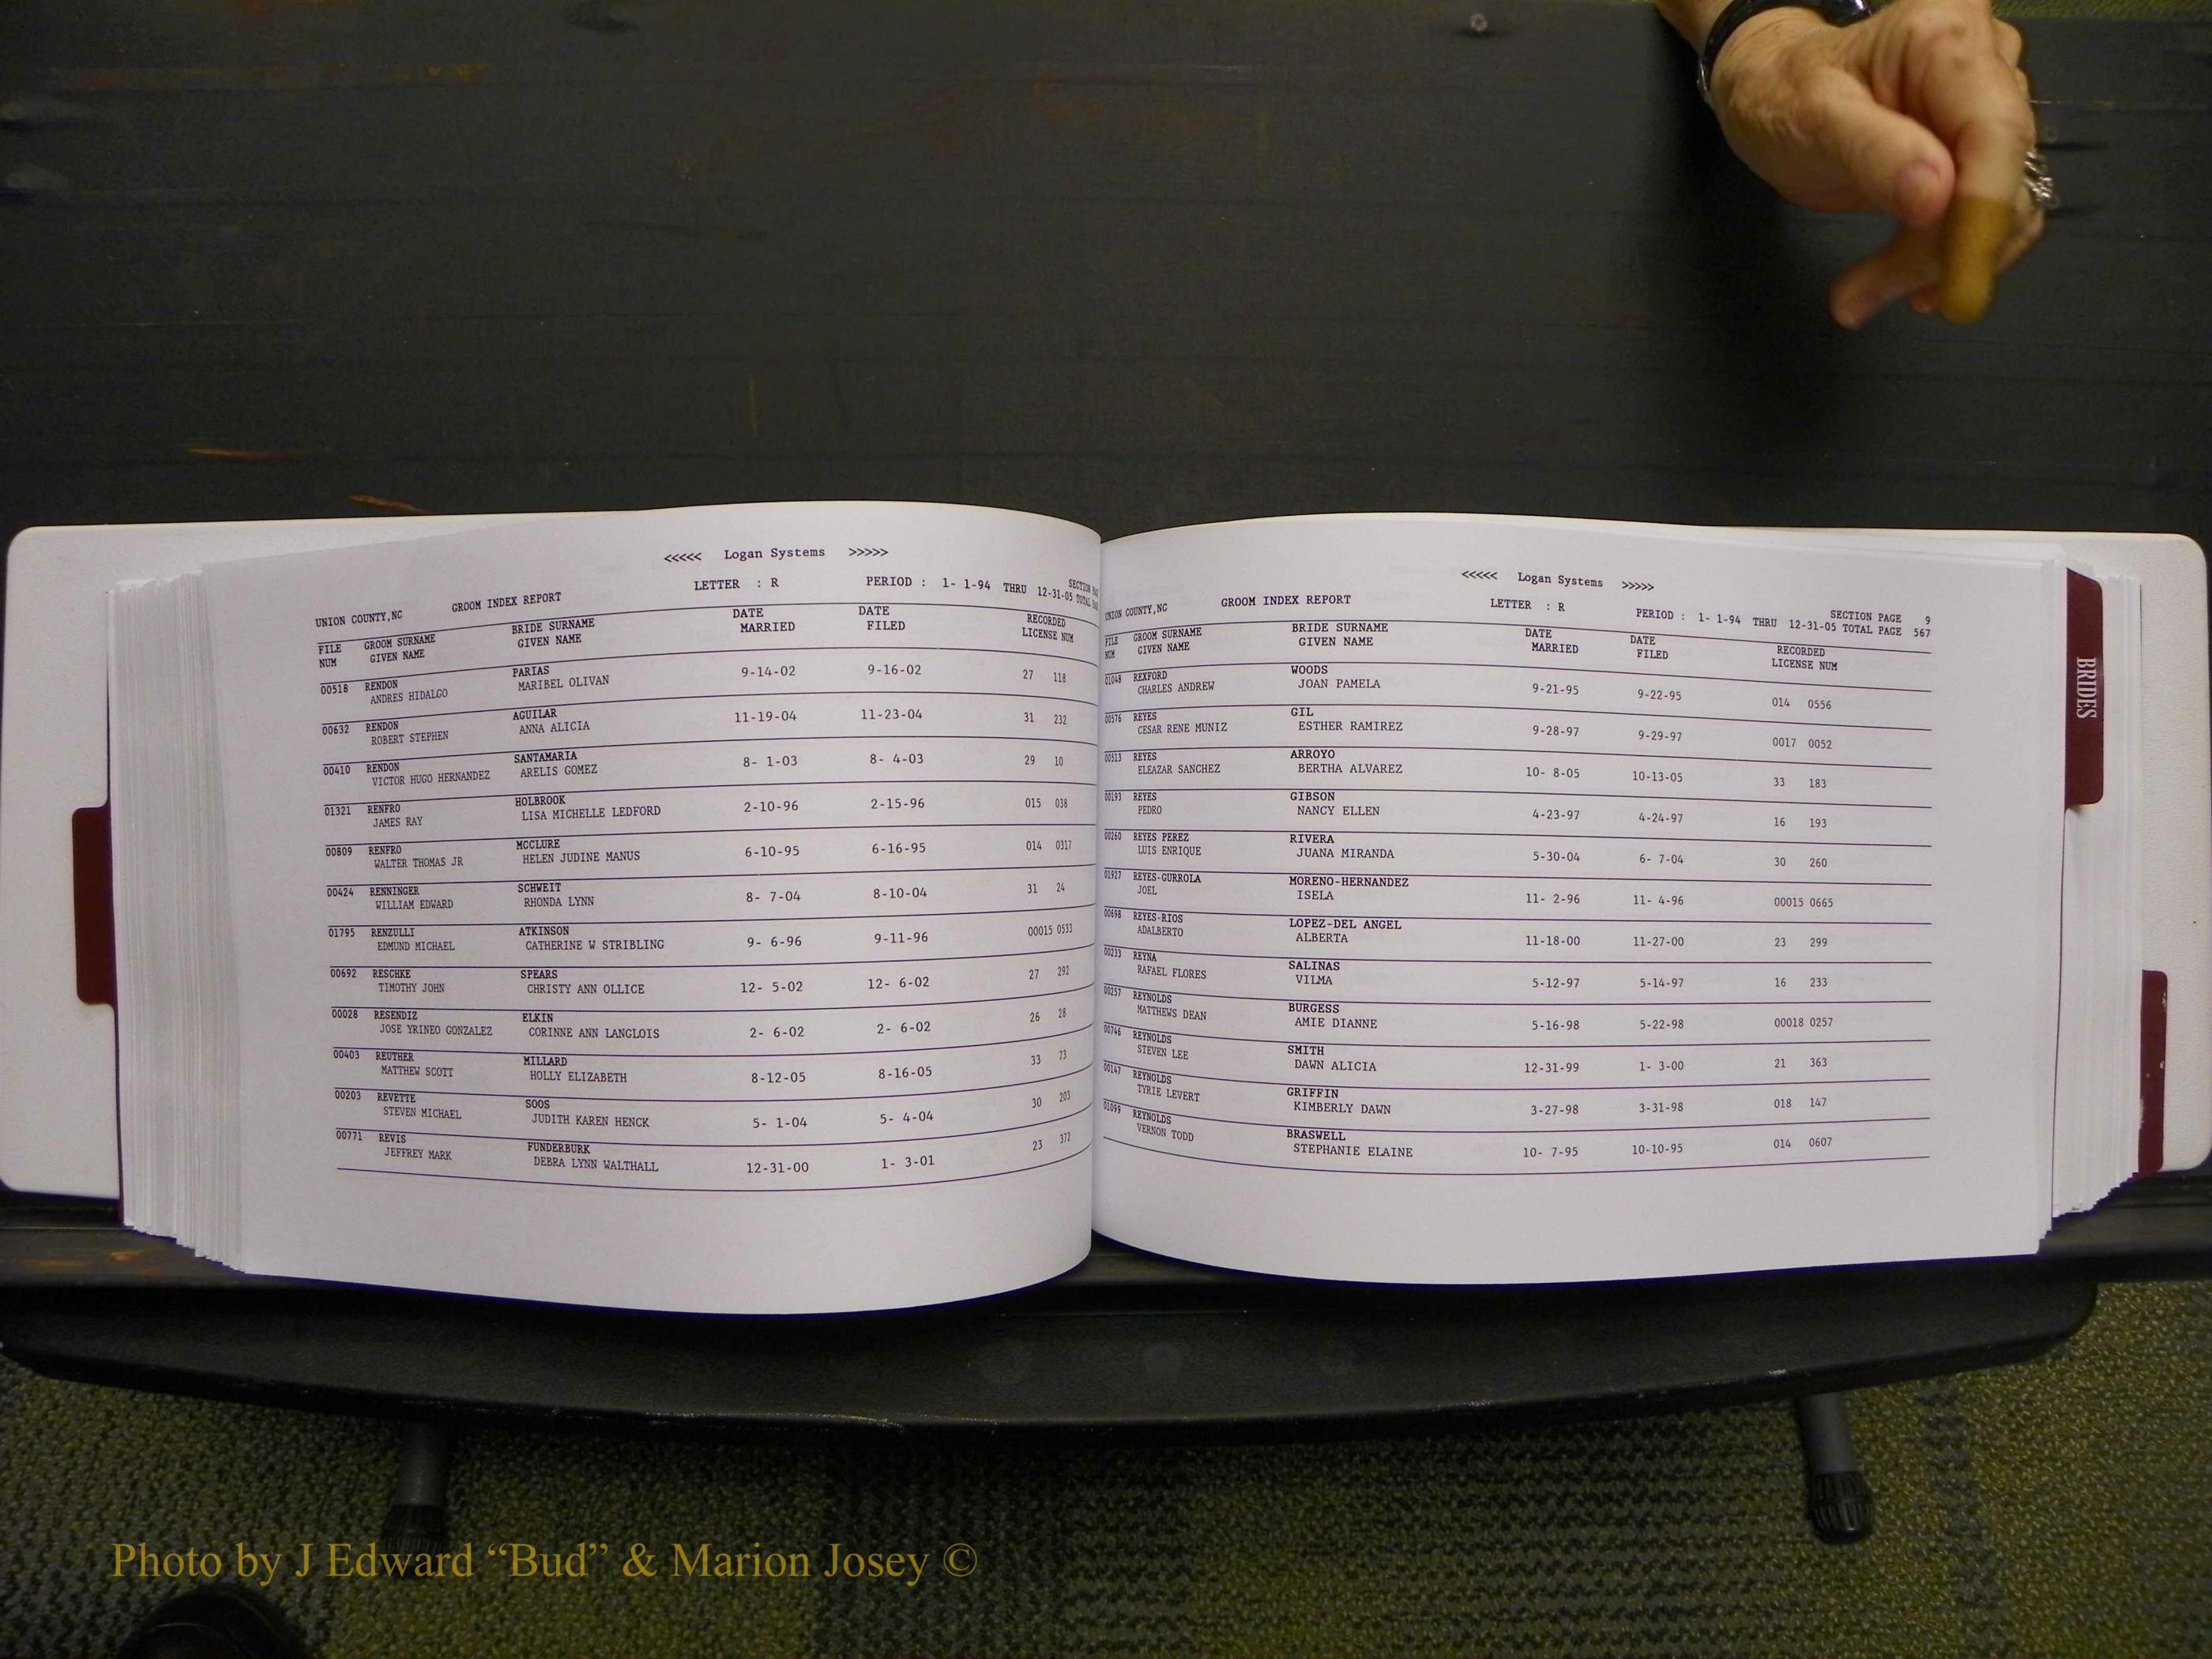 <<<<< Logan Systems >>>>>
UNION COUNTY,NC GROOM INDEX REPORT LETTER : R PERIOD : 1- 1-94 THRU 12-31-05 SECTION
TOTAL
FILE GROOM SURNAME BRIDE SURNAME DATE DATE RECORDED
NUM GIVEN NAME GIVEN NAME MARRIED FILED LICENSE NUM
00518 RENDON PARIAS 9-14-02 9-16-02 27 118
ANDRES HIDALGO MARIBEL OLIVAN
00632 RENDON AGUILAR 11-19-04 11-23-04 31 232
ROBERT STEPHEN ANNA ALICIA
00410 RENDON SANTAMARIA 8- 1-03 8- 4-03 29 10
VICTOR HUGO HERNANDEZ ARELIS GOMEZ
01321 RENFRO HOLBROOK 2-10-96 2-15-96 015 038
JAMES RAY LISA MICHELLE LEDFORD
00809 RENFRO MCCLURE 6-10-95 6-16-95 014 0317
WALTER THOMAS JR HELEN JUDINE MANUS
00424 RENNINGER SCHWEIT 8- 7-04 8-10-04 31 24
WILLIAM EDWARD RHONDA LYNN
01795 RENZULLI ATKINSON 9- 6-96 9-11-96 00015 0533
EDMUND MICHAEL CATHERINE W STRIBLING
00692 RESCHKE SPEARS 12- 5-02 12- 6-02 27 292
TIMOTHY JOHN CHRISTY ANN OLLICE
00028 RESENDIZ ELKIN 2- 6-02 2- 6-02 26 28
JOSE YRINEO GONZALEZ CORINNE ANN LANGLOIS
00403 REUTHER MILLARD 8-12-05 8-16-05 33 73
MATTHEW SCOTT HOLLY ELIZABETH
00203 REVETTE SOOS 5- 1-04 5- 4-04 30 203
STEVEN MICHAEL JUDITH KAREN HENCK
00771 REVIS FUNDERBURK 12-31-00 1- 3-01 23 372
JEFFREY MARK DEBRA LYNN WALTHALL
<<<<< Logan Systems >>>>>
UNION COUNTY,NC GROOM INDEX REPORT LETTER : R PERIOD : 1- 1-94 THRU 12-31-05 SECTION PAGE 9
TOTAL PAGE 567
FILE GROOM SURNAME BRIDE SURNAME DATE DATE RECORDED
NUM GIVEN NAME GIVEN NAME MARRIED FILED LICENSE NUM
01048 REXFORD WOODS 9-21-95 9-22-95 014 0556
CHARLES ANDREW JOAN PAMELA
00576 REYES GIL 9-28-97 9-29-97 0017 0052
CESAR RENE MUNIZ ESTHER RAMIREZ
00513 REYES ARROYO 10- 8-05 10-13-05 33 183
ELEAZAR SANCHEZ BERTHA ALVAREZ
00193 REYES GIBSON 4-23-97 4-24-97 16 193
PEDRO NANCY ELLEN
00260 REYES PEREZ RIVERA 5-30-04 6- 7-04 30 260
LUIS ENRIQUE JUANA MIRANDA
01927 REYES-GURROLA MORENO-HERNANDEZ 11- 2-96 11- 4-96 00015 0665
JOEL ISELA
00698 REYES-RIOS LOPEZ-DEL ANGEL 11-18-00 11-27-00 23 299
ADALBERTO ALBERTA
00233 REYNA SALINAS 5-12-97 5-14-97 16 233
RAFAEL FLORES VILMA
00257 REYNOLDS BURGESS 5-16-98 5-22-98 00018 0257
MATTHEWS DEAN AMIE DIANNE
00746 REYNOLDS SMITH 12-31-99 1- 3-00 21 363
STEVEN LEE DAWN ALICIA
00147 REYNOLDS GRIFFIN 3-27-98 3-31-98 018 147
TYRIE LEVERT KIMBERLY DAWN
01099 REYNOLDS BRASWELL 10- 7-95 10-10-95 014 0607
VERNON TODD STEPHANIE ELAINE
BRIDES
Photo by J Edward “Bud” & Marion Josey ©